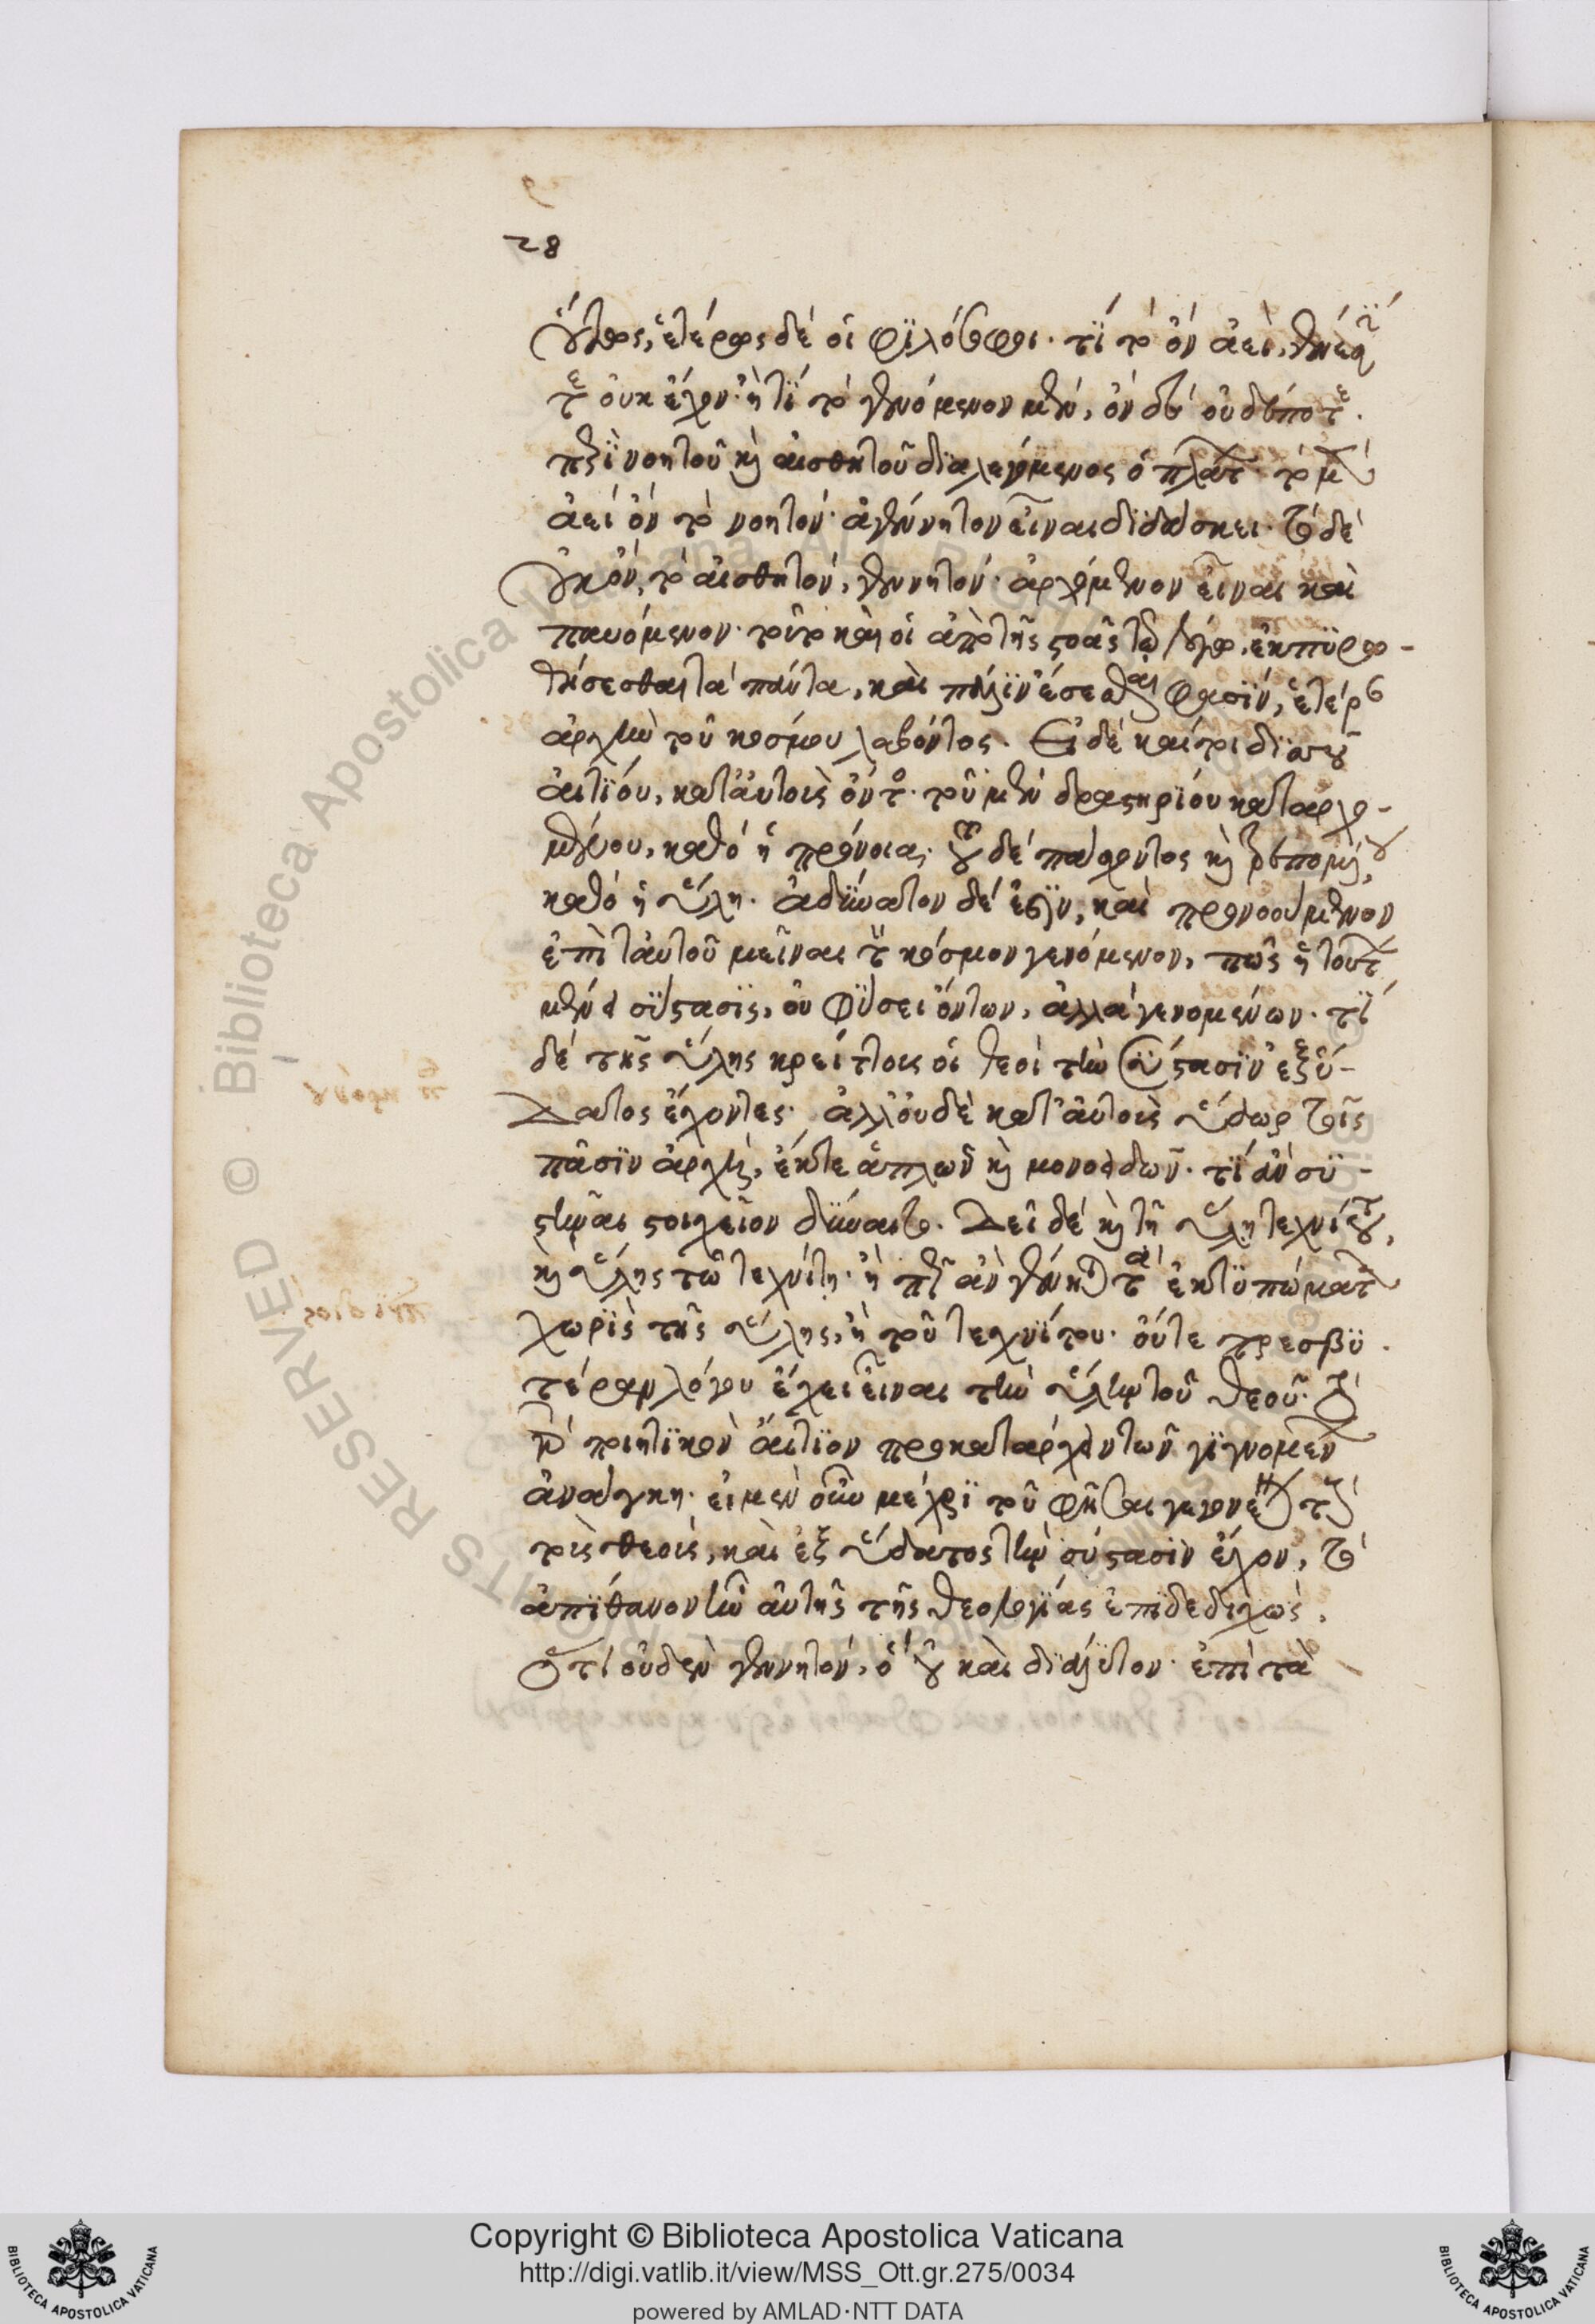 28
οὗτος, ἑτέρως δὲ οἱ φϊλόσοφοι. τί τὸ ὂν ἀεὶ, γένεσίν
τε οὐκ ἔχον· ἢ τί τὸ γενόμενον μὲν, ὂν δὲ οὐδέποτε.
περὶ νοητοῦ καὶ αἰσθητοῦ διαλεγόμενος ὁ πλάτων· τὸ μὲν
ἀεὶ ὂν τὸ νοητόν· ἀγένητον εἶναι διδάσκει· τὸ δὲ
οὐκ ὂν, τὸ αἰσθητόν, γενητόν· ἀρχόμενον εἶναι καὶ
παυόμενον· τούτῳ καὶ οἱ ἀπὸ τῆς στοᾶς τῷ λόγῳ. ἐκπϋρω-
θήσεσθαι τὰ πάντα, καὶ πάλιν ἔσεσθαι φασὶν, ἑτέραν
ἀρχὴν τοῦ κόσμου λαβόντος. Εἰ δὲ καίτοι δισσοῦ
αἰτίου, κατ' αὐτοὺς ὄντος· τοῦ μὲν δραστηρίου καταρχο-
μένου, καθὸ ἡ πρόνοια· τοῦ δὲ πάσχοντος καὶ τρεπομένου,
καθὸ ἡ ὕλη. ἀδύνατον δέ ἐστιν, καὶ προνοούμενον
ἐπὶ ταὐτοῦ μεῖναι τὸν κόσμον γενόμενον, πῶς ἡ τούτων
μένει σύστασις, οὐ φύσει ὄντων, ἀλλὰ γενομένων. τί
δὲ τῆς ὕλης κρείττους οἱ θεοὶ τὴν σύστασιν ἐξ ὕ-
δατος ἔχοντες. ἀλλ' οὐδὲ κατ' αὐτοὺς ὕδωρ τοῖς
πᾶσιν ἀρχὴ, ἔκ τε ἁπλῶν καὶ μονοειδῶν. τί ἂν συ-
στῆναι στοιχεῖον δύναιτο. Δεῖ δὲ καὶ τῇ ὕλῃ τεχνίτου,
καὶ ὕλης τῷ τεχνίτῃ. ἢ πῶς ἂν γένοιτο τὰ ἐκτυπώματα
χωρὶς τῆς ὕλης, ἢ τοῦ τεχνίτου. οὔτε πρεσβυ-
τέραν λόγον ἔχει εἶναι τὴν ὕλην τοῦ θεοῦ. τὸ γὰρ
ποιητικὸν αἴτιον προκατάρχειν τῶν γιγνομένων
ἀνάγκη. εἰ μὲν οὖν μέχρι τοῦ φῆσαι γεγονέναι
τοὺς θεοὺς, καὶ ἐξ ὕδατος τὴν σύστασιν ἔχον, τὸ
ἀπίθανον ἦν αὐτῆς τῆς θεολογίας ἐπιδεδειχὼς,
ὅτι οὐδὲν γενητόν, ὃ οὐ καὶ διαλυτόν. ἐπὶ τὰ
Copyright © Biblioteca Apostolica Vaticana
http://digi.vatlib.it/view/MSS_Ott.gr.275/0034
powered by AMLAD·NTT DATA